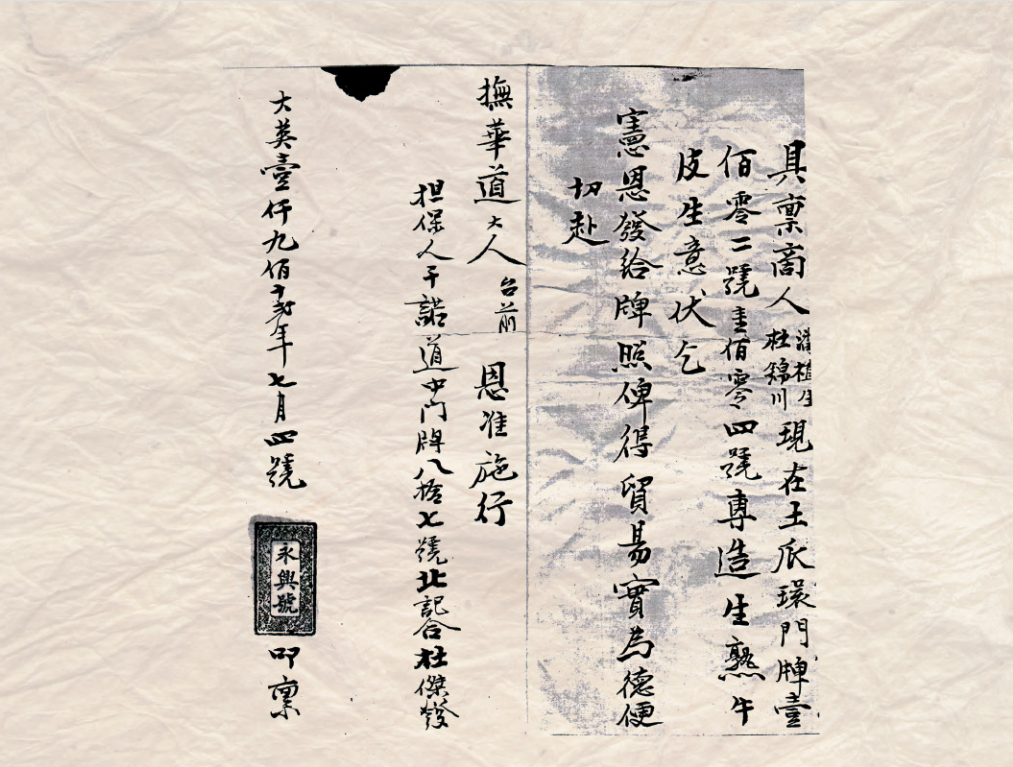 具禀商人 杜錦川 現在土瓜環門牌壹
佰零二號壹佰零四號專造生熟牛
皮生意伏乞
憲恩發給牌照俾得貿易實為德便
切赴
撫華道大人台前 恩准施行
担保人干諾道中門牌八拾七號北記合杜傑發
大英壹仟九佰十弍年七月四號
永興號
叩禀